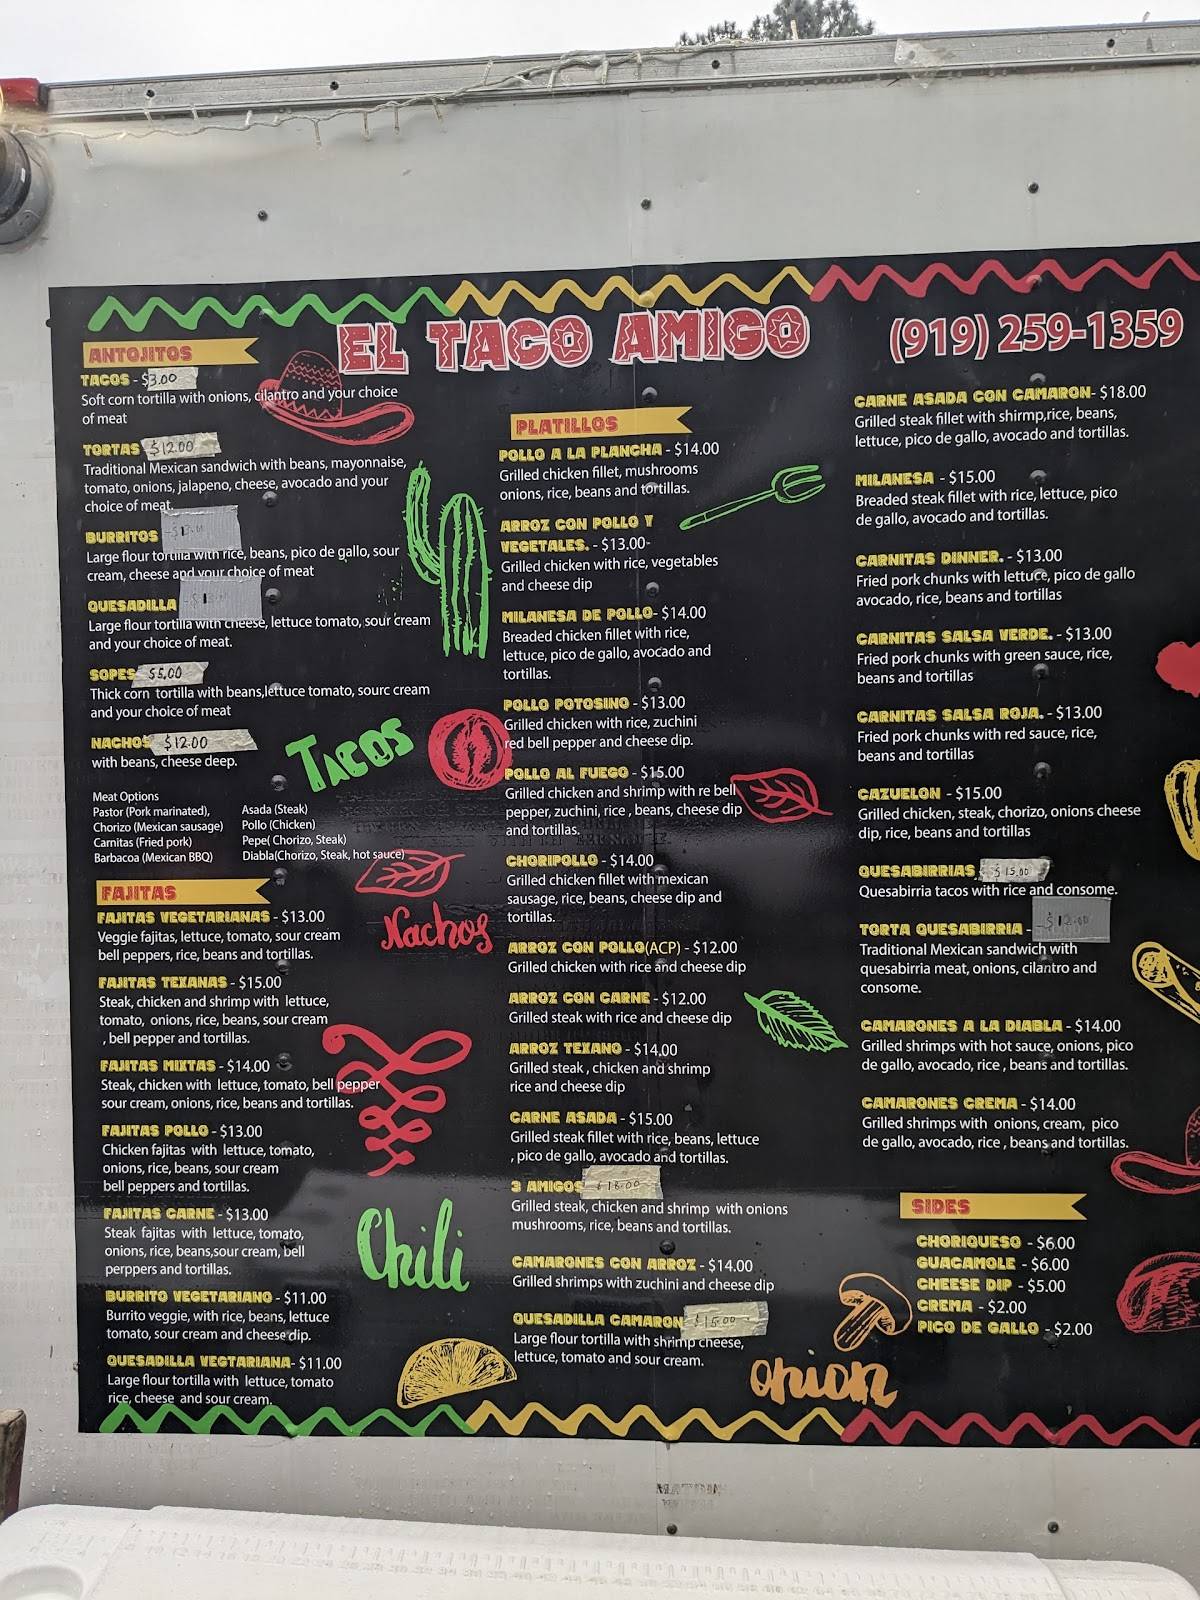 EL TACO AMIGO
(919) 259-1359
ANTOJITOS
TACOS - $3.00
Soft corn tortilla with onions, cilantro and your choice
of meat
TORTAS $12.00
Traditional Mexican sandwich with beans, mayonnaise,
tomato, onions, jalapeno, cheese, avocado and your
choice of meat.
BURRITOS
Large flour tortilla with rice, beans, pico de gallo, sour
cream, cheese and your choice of meat
QUESADILLA
Large flour tortilla with cheese, lettuce tomato, sour cream
and your choice of meat.
SOPES $5.00
Thick corn tortilla with beans,lettuce tomato, sourc cream
and your choice of meat
NACHOS $12.00
with beans, cheese deep.
Meat Options
Pastor (Pork marinated),
Chorizo (Mexican sausage)
Carnitas (Fried pork)
Barbacoa (Mexican BBQ)
Asada (Steak)
Pollo (Chicken)
Pepe( Chorizo, Steak)
Diabla(Chorizo, Steak, hot sauce)
Tacos
FAJITAS
FAJITAS VEGETARIANAS - $13.00
Veggie fajitas, lettuce, tomato, sour cream
bell peppers, rice, beans and tortillas.
FAJITAS TEXANAS - $15.00
Steak, chicken and shrimp with lettuce,
tomato, onions, rice, beans, sour cream
, bell pepper and tortillas.
FAJITAS MIXTAS - $14.00
Steak, chicken with lettuce, tomato, bell pepper
sour cream, onions, rice, beans and tortillas.
FAJITAS POLLO - $13.00
Chicken fajitas with lettuce, tomato,
onions, rice, beans, sour cream
bell peppers and tortillas.
FAJITAS CARNE - $13.00
Steak fajitas with lettuce, tomato,
onions, rice, beans,sour cream, bell
perppers and tortillas.
BURRITO VEGETARIANO - $11.00
Burrito veggie, with rice, beans, lettuce
tomato, sour cream and cheese dip.
QUESADILLA VEGTARIANA- $11.00
Large flour tortilla with lettuce, tomato
rice, cheese and sour cream.
Nachos
Chili
PLATILLOS
POLLO A LA PLANCHA - $14.00
Grilled chicken fillet, mushrooms
onions, rice, beans and tortillas.
ARROZ CON POLLO Y
VEGETALES. - $13.00-
Grilled chicken with rice, vegetables
and cheese dip
MILANESA DE POLLO- $14.00
Breaded chicken fillet with rice,
lettuce, pico de gallo, avocado and
tortillas.
POLLO POTOSINO - $13.00
Grilled chicken with rice, zuchini
red bell pepper and cheese dip.
POLLO AL FUEGO - $15.00
Grilled chicken and shrimp with re bell
pepper, zuchini, rice , beans, cheese dip
and tortillas.
CHORIPOLLO - $14.00
Grilled chicken fillet with mexican
sausage, rice, beans, cheese dip and
tortillas.
ARROZ CON POLLO(ACP) - $12.00
Grilled chicken with rice and cheese dip
ARROZ CON CARNE - $12.00
Grilled steak with rice and cheese dip
ARROZ TEXANO - $14.00
Grilled steak , chicken and shrimp
rice and cheese dip
CARNE ASADA - $15.00
Grilled steak fillet with rice, beans, lettuce
, pico de gallo, avocado and tortillas.
3 AMIGOS
Grilled steak, chicken and shrimp with onions
mushrooms, rice, beans and tortillas.
CAMARONES CON ARROZ - $14.00
Grilled shrimps with zuchini and cheese dip
QUESADILLA CAMARON $15.00
Large flour tortilla with shrimp cheese,
lettuce, tomato and sour cream.
onion
CARNE ASADA CON CAMARON- $18.00
Grilled steak fillet with shirmp,rice, beans,
lettuce, pico de gallo, avocado and tortillas.
MILANESA - $15.00
Breaded steak fillet with rice, lettuce, pico
de gallo, avocado and tortillas.
CARNITAS DINNER. - $13.00
Fried pork chunks with lettuce, pico de gallo
avocado, rice, beans and tortillas
CARNITAS SALSA VERDE. - $13.00
Fried pork chunks with green sauce, rice,
beans and tortillas
CARNITAS SALSA ROJA. - $13.00
Fried pork chunks with red sauce, rice,
beans and tortillas
CAZUELON - $15.00
Grilled chicken, steak, chorizo, onions cheese
dip, rice, beans and tortillas
QUESABIRRIAS $15.00
Quesabirria tacos with rice and consome.
TORTA QUESABIRRIA -
Traditional Mexican sandwich with
quesabirria meat, onions, cilantro and
consome.
CAMARONES A LA DIABLA - $14.00
Grilled shrimps with hot sauce, onions, pico
de gallo, avocado, rice , beans and tortillas.
CAMARONES CREMA - $14.00
Grilled shrimps with onions, cream, pico
de gallo, avocado, rice , beans and tortillas.
SIDES
CHORIQUESO - $6.00
GUACAMOLE - $6.00
CHEESE DIP - $5.00
CREMA - $2.00
PICO DE GALLO - $2.00